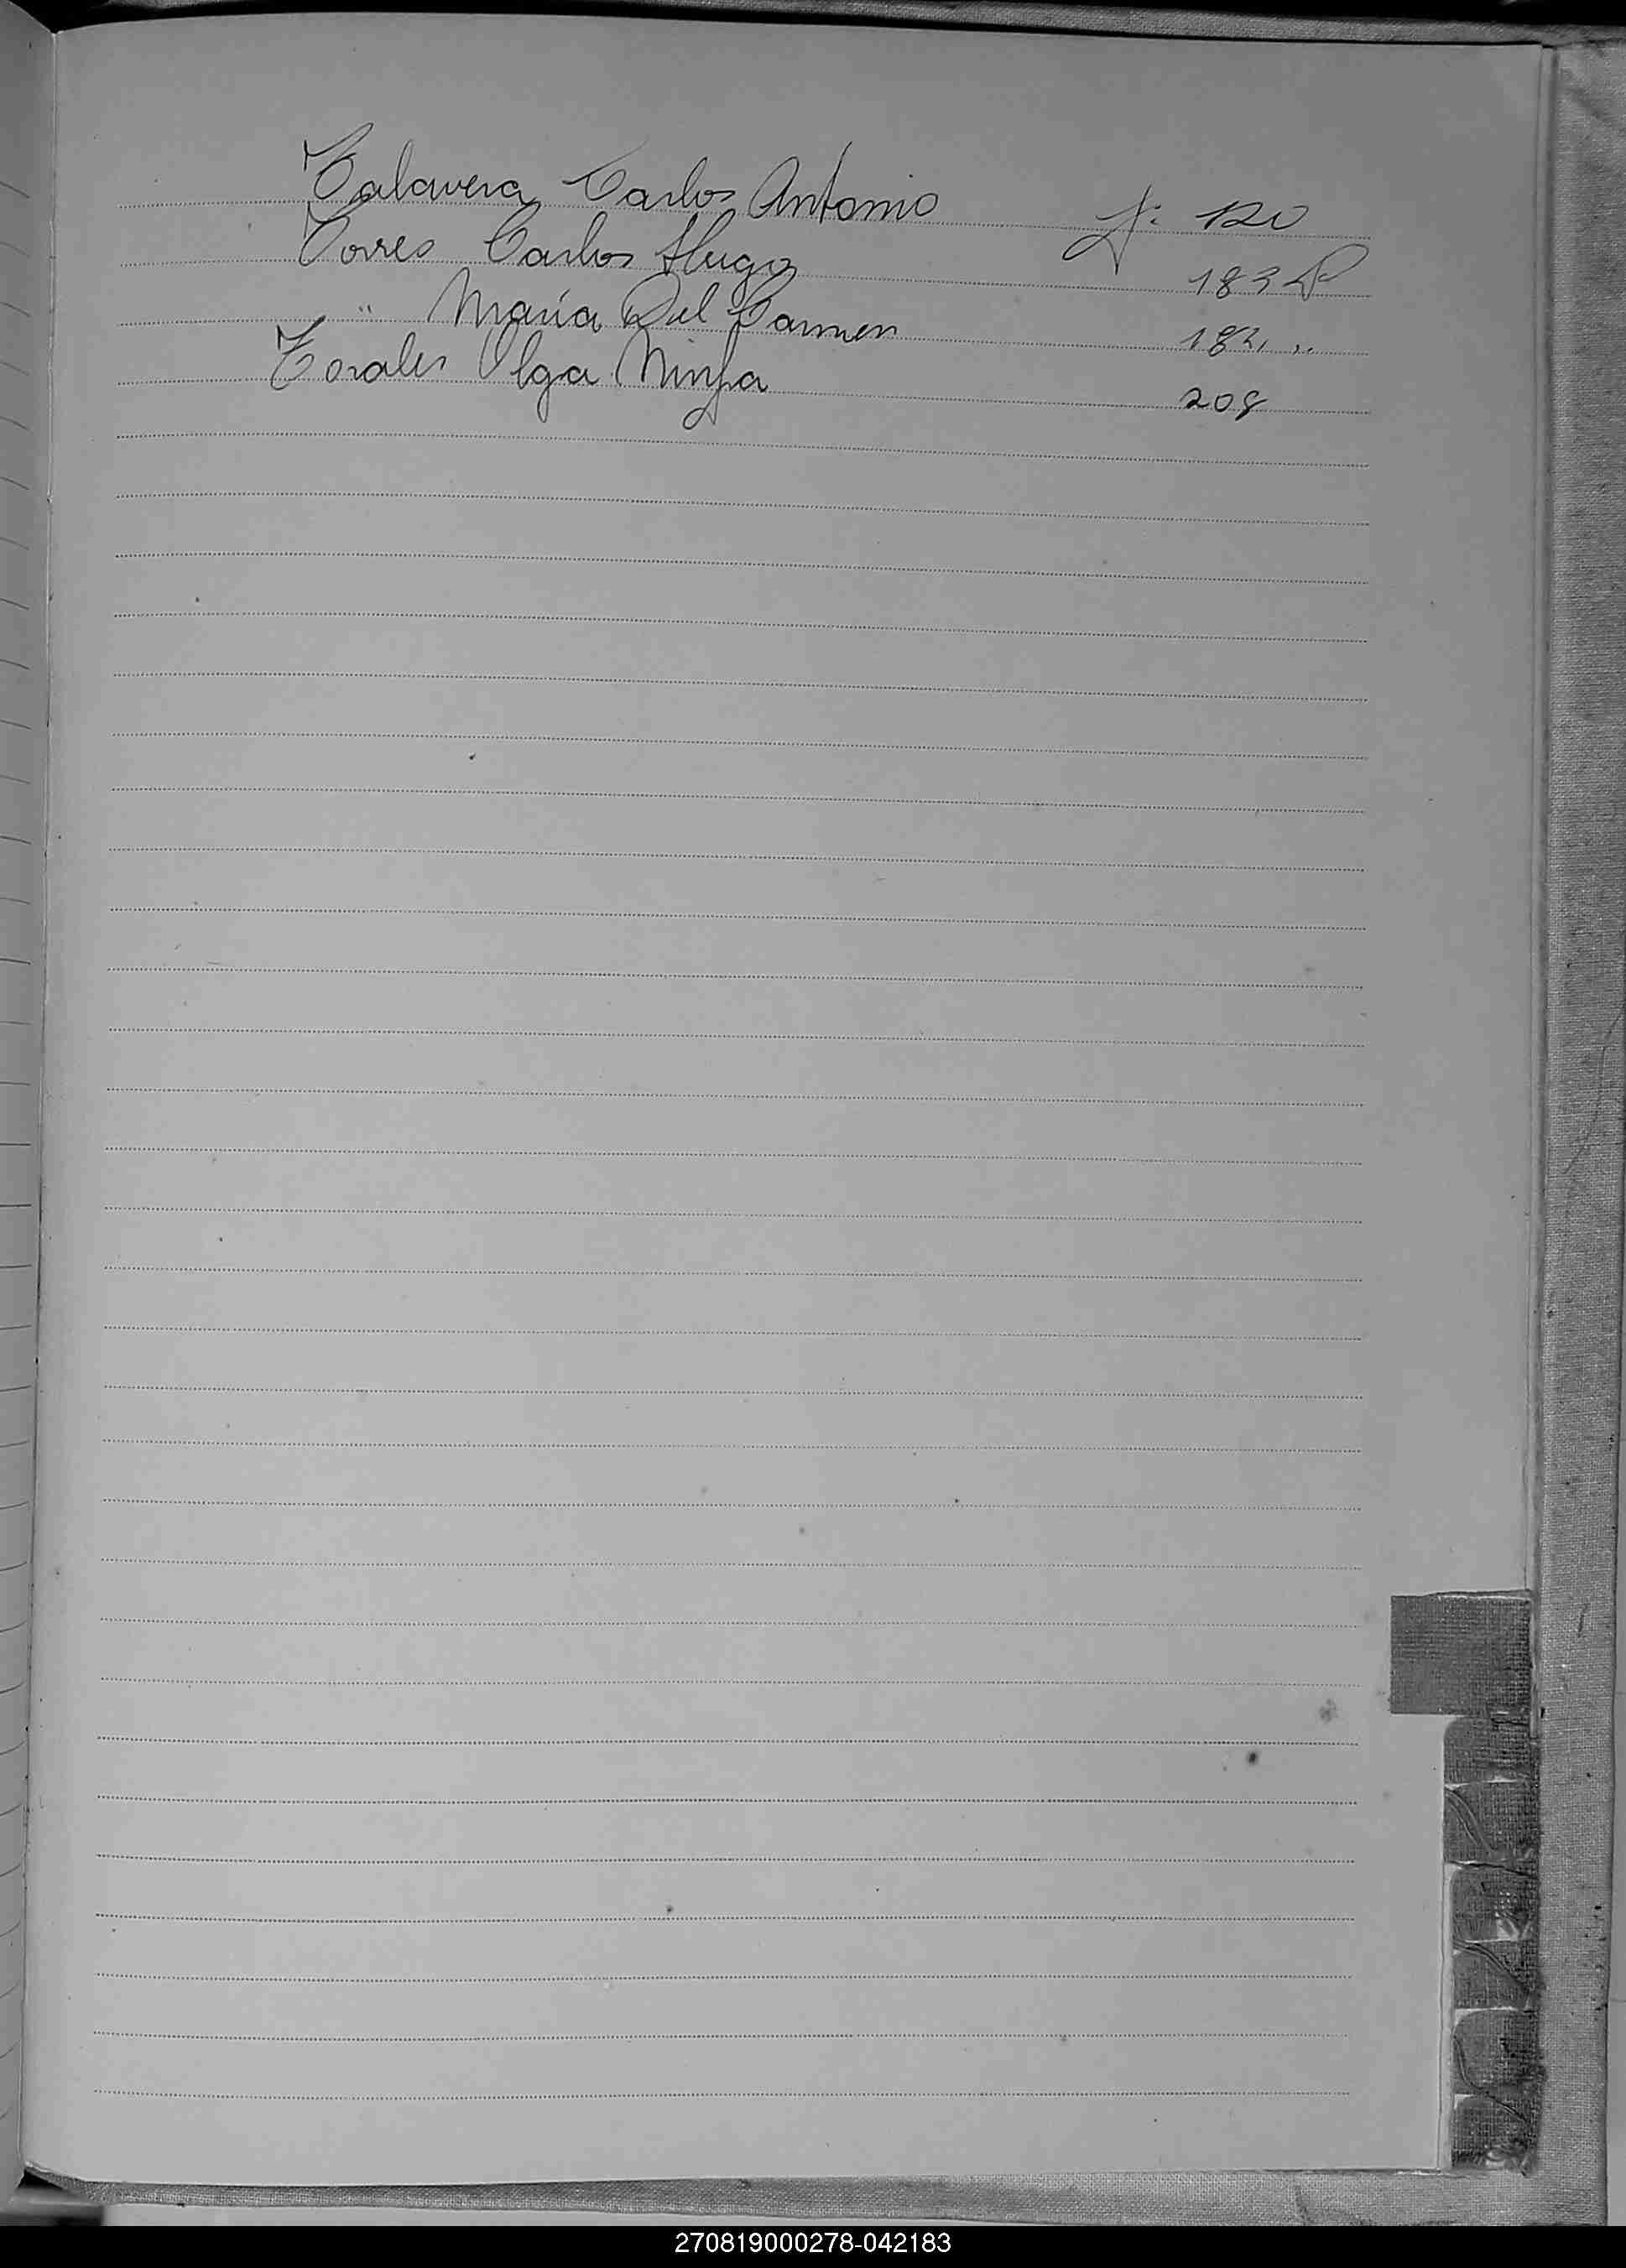 Talavera Carlos Antonio f: 120
Torres Carlos Hugo 183
" Maria Del Carmen 182 "
Torales Olga Ninfa 208
270819000278-042183